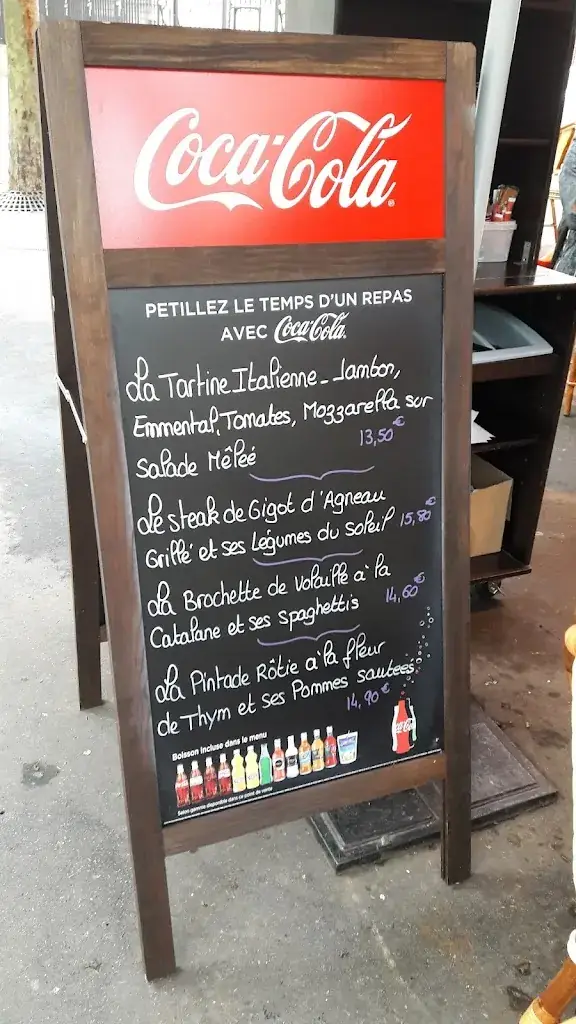 Coca-Cola
PETILLEZ LE TEMPS D'UN REPAS
AVEC Coca-Cola.
La Tartine Italienne - Jambon,
Emmental, Tomates, Mozzarella sur
Salade Mêleé 13,50€
Le steak de Gigot d'Agneau
Grillé et ses Légumes du Soleil 15,80€
La Brochette de Volaille à la
Catalane et ses Spaghettis 14,60€
La Pintade Rôtie à la fleur
de Thym et ses Pommes sautees
14,90€
Boisson incluse dans le menu
Coca-Cola
Selon gamme disponible dans ce point de vente